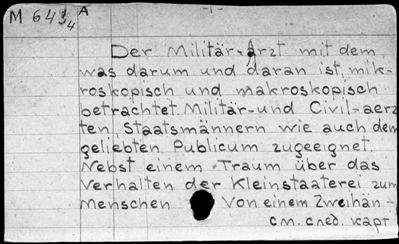 M 643/4 A -1-
Der Militär-Arzt mit dem,
was darum und daran ist, mik-
roskopisch und makroskopisch
betrachtet. Militär- und Civil-aerz-
ten, Staatsmännern wie auch dem
geliebten Publicum zugeeignet.
Nebst einem Traum über das
Verhalten der Kleinstaaterei zum
Menschen Von einem Zweihän-
см. след. карт